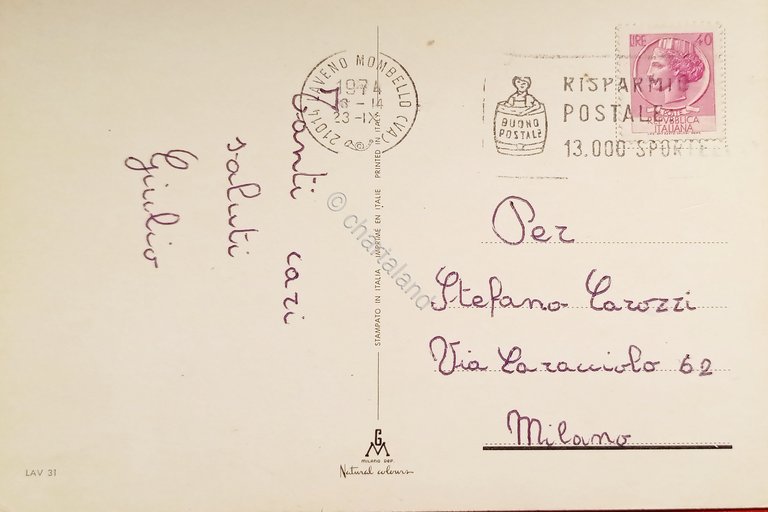 Tanti cari
saluti
Giulio
21014 LAVENO MOMBELLO (VA)
1974
18 - 14
23 - IX
BUONO
POSTALE
RISPARMIO
POSTALE
13.000 SPORTELLI
LIRE 40
REPUBBLICA
ITALIANA
Per
Stefano Carozzi
Via Caracciolo 62
Milano
STAMPATO IN ITALIA IMPRIME EN ITALIE PRINTED IN ITALY
© chartaland
GM
MILANO DEP.
Natural colours
LAV 31